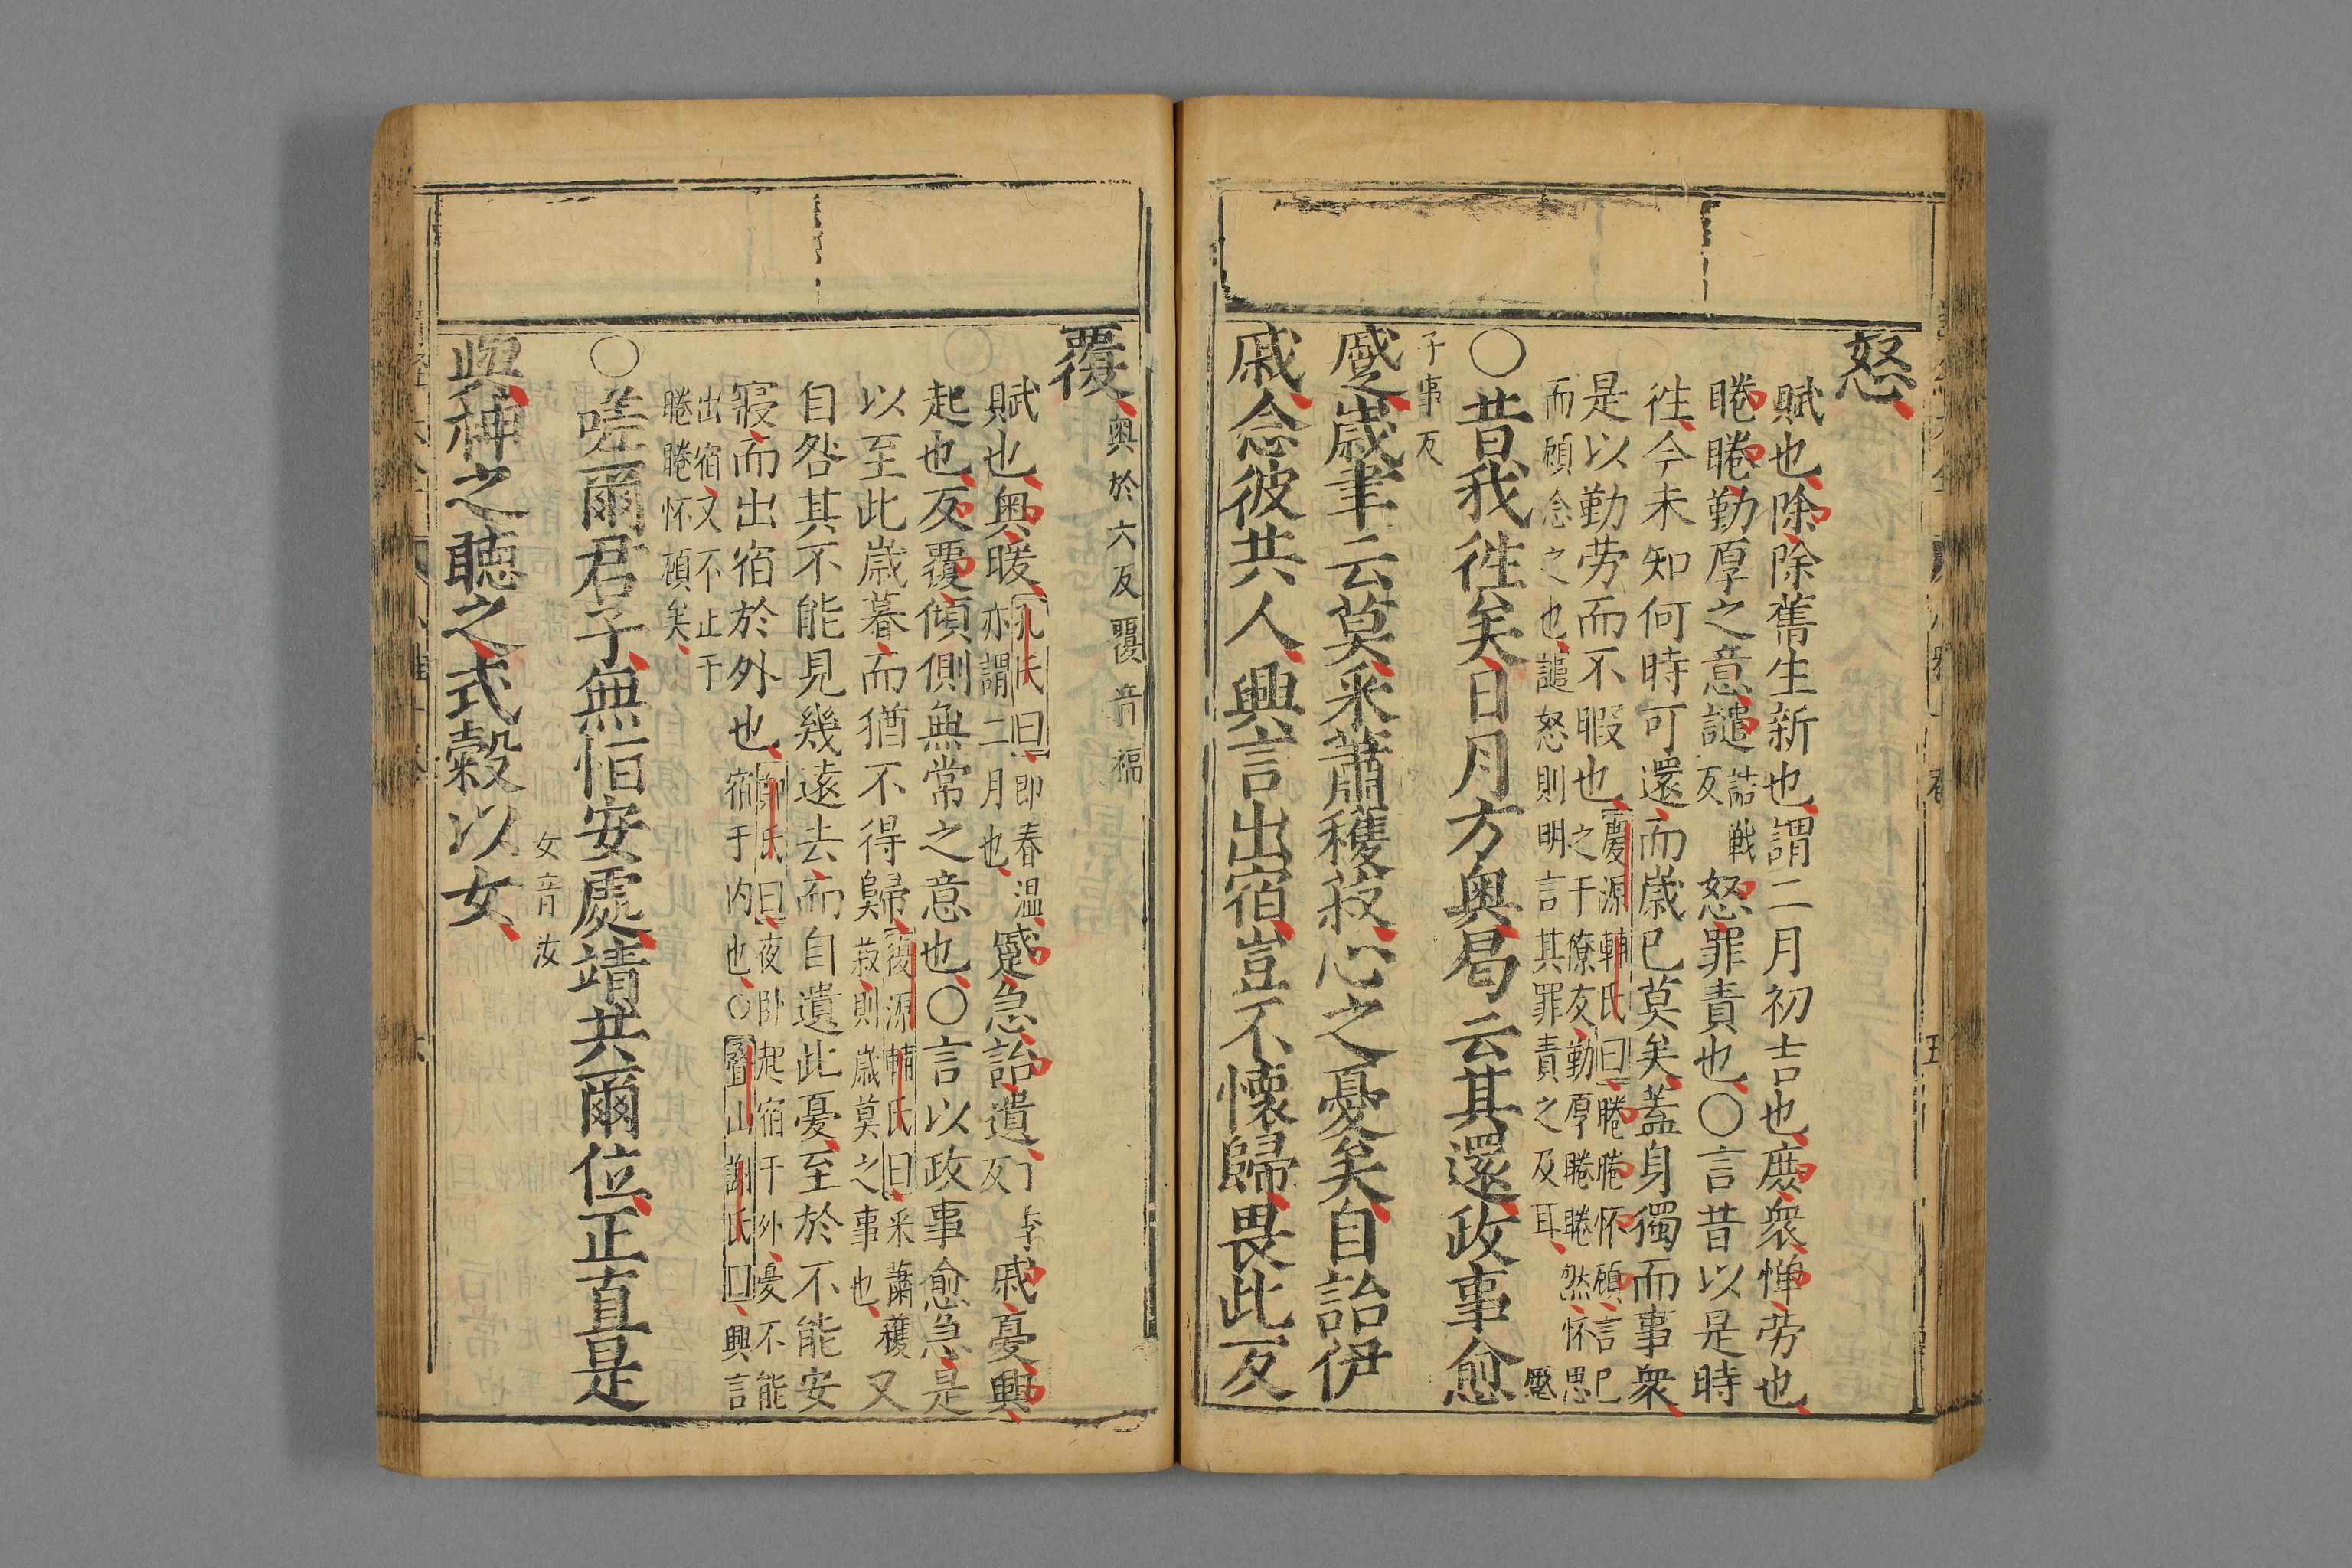 怒
賦也除除舊生新也謂二月初吉也庶衆憚勞也
睠睠勤厚之意譴詰戰反怒罪責也○言昔以是時
徃今未知何時可還而歲已莫矣蓋身獨而事衆
是以勤劳而不暇也慶源輔氏曰睠睠怀顧言已
之于僚友勤厚睠睠然怀思
而顧念之也譴怒則明言其罪責之及耳
○昔我徃矣日月方奥曷云其還政事愈
蹙
子事反
歲聿云莫采蕭穫菽心之憂矣自詒伊
戚念彼共人興言出宿豈不懷歸畏此反
覆奥於六反覆音福
賦也奥暖孔氏曰即春温
亦謂二月也蹙急詒遺戚憂興
起也反覆傾側無常之意也○言以政事愈急是
以至此歲暮而猶不得歸慶源輔氏曰采蕭穫
菽則歲莫之事也又
自咎其不能見幾遠去而自遺此憂至於不能安
寢而出宿於外也鄭氏曰夜卧起宿于外憂不能
宿于内也○疊山謝氏曰興言
出宿又不止于
睠睠怀顧矣
○嗟爾君子無恒安處靖共爾位正直是
女音汝
與神之聽之式穀以女